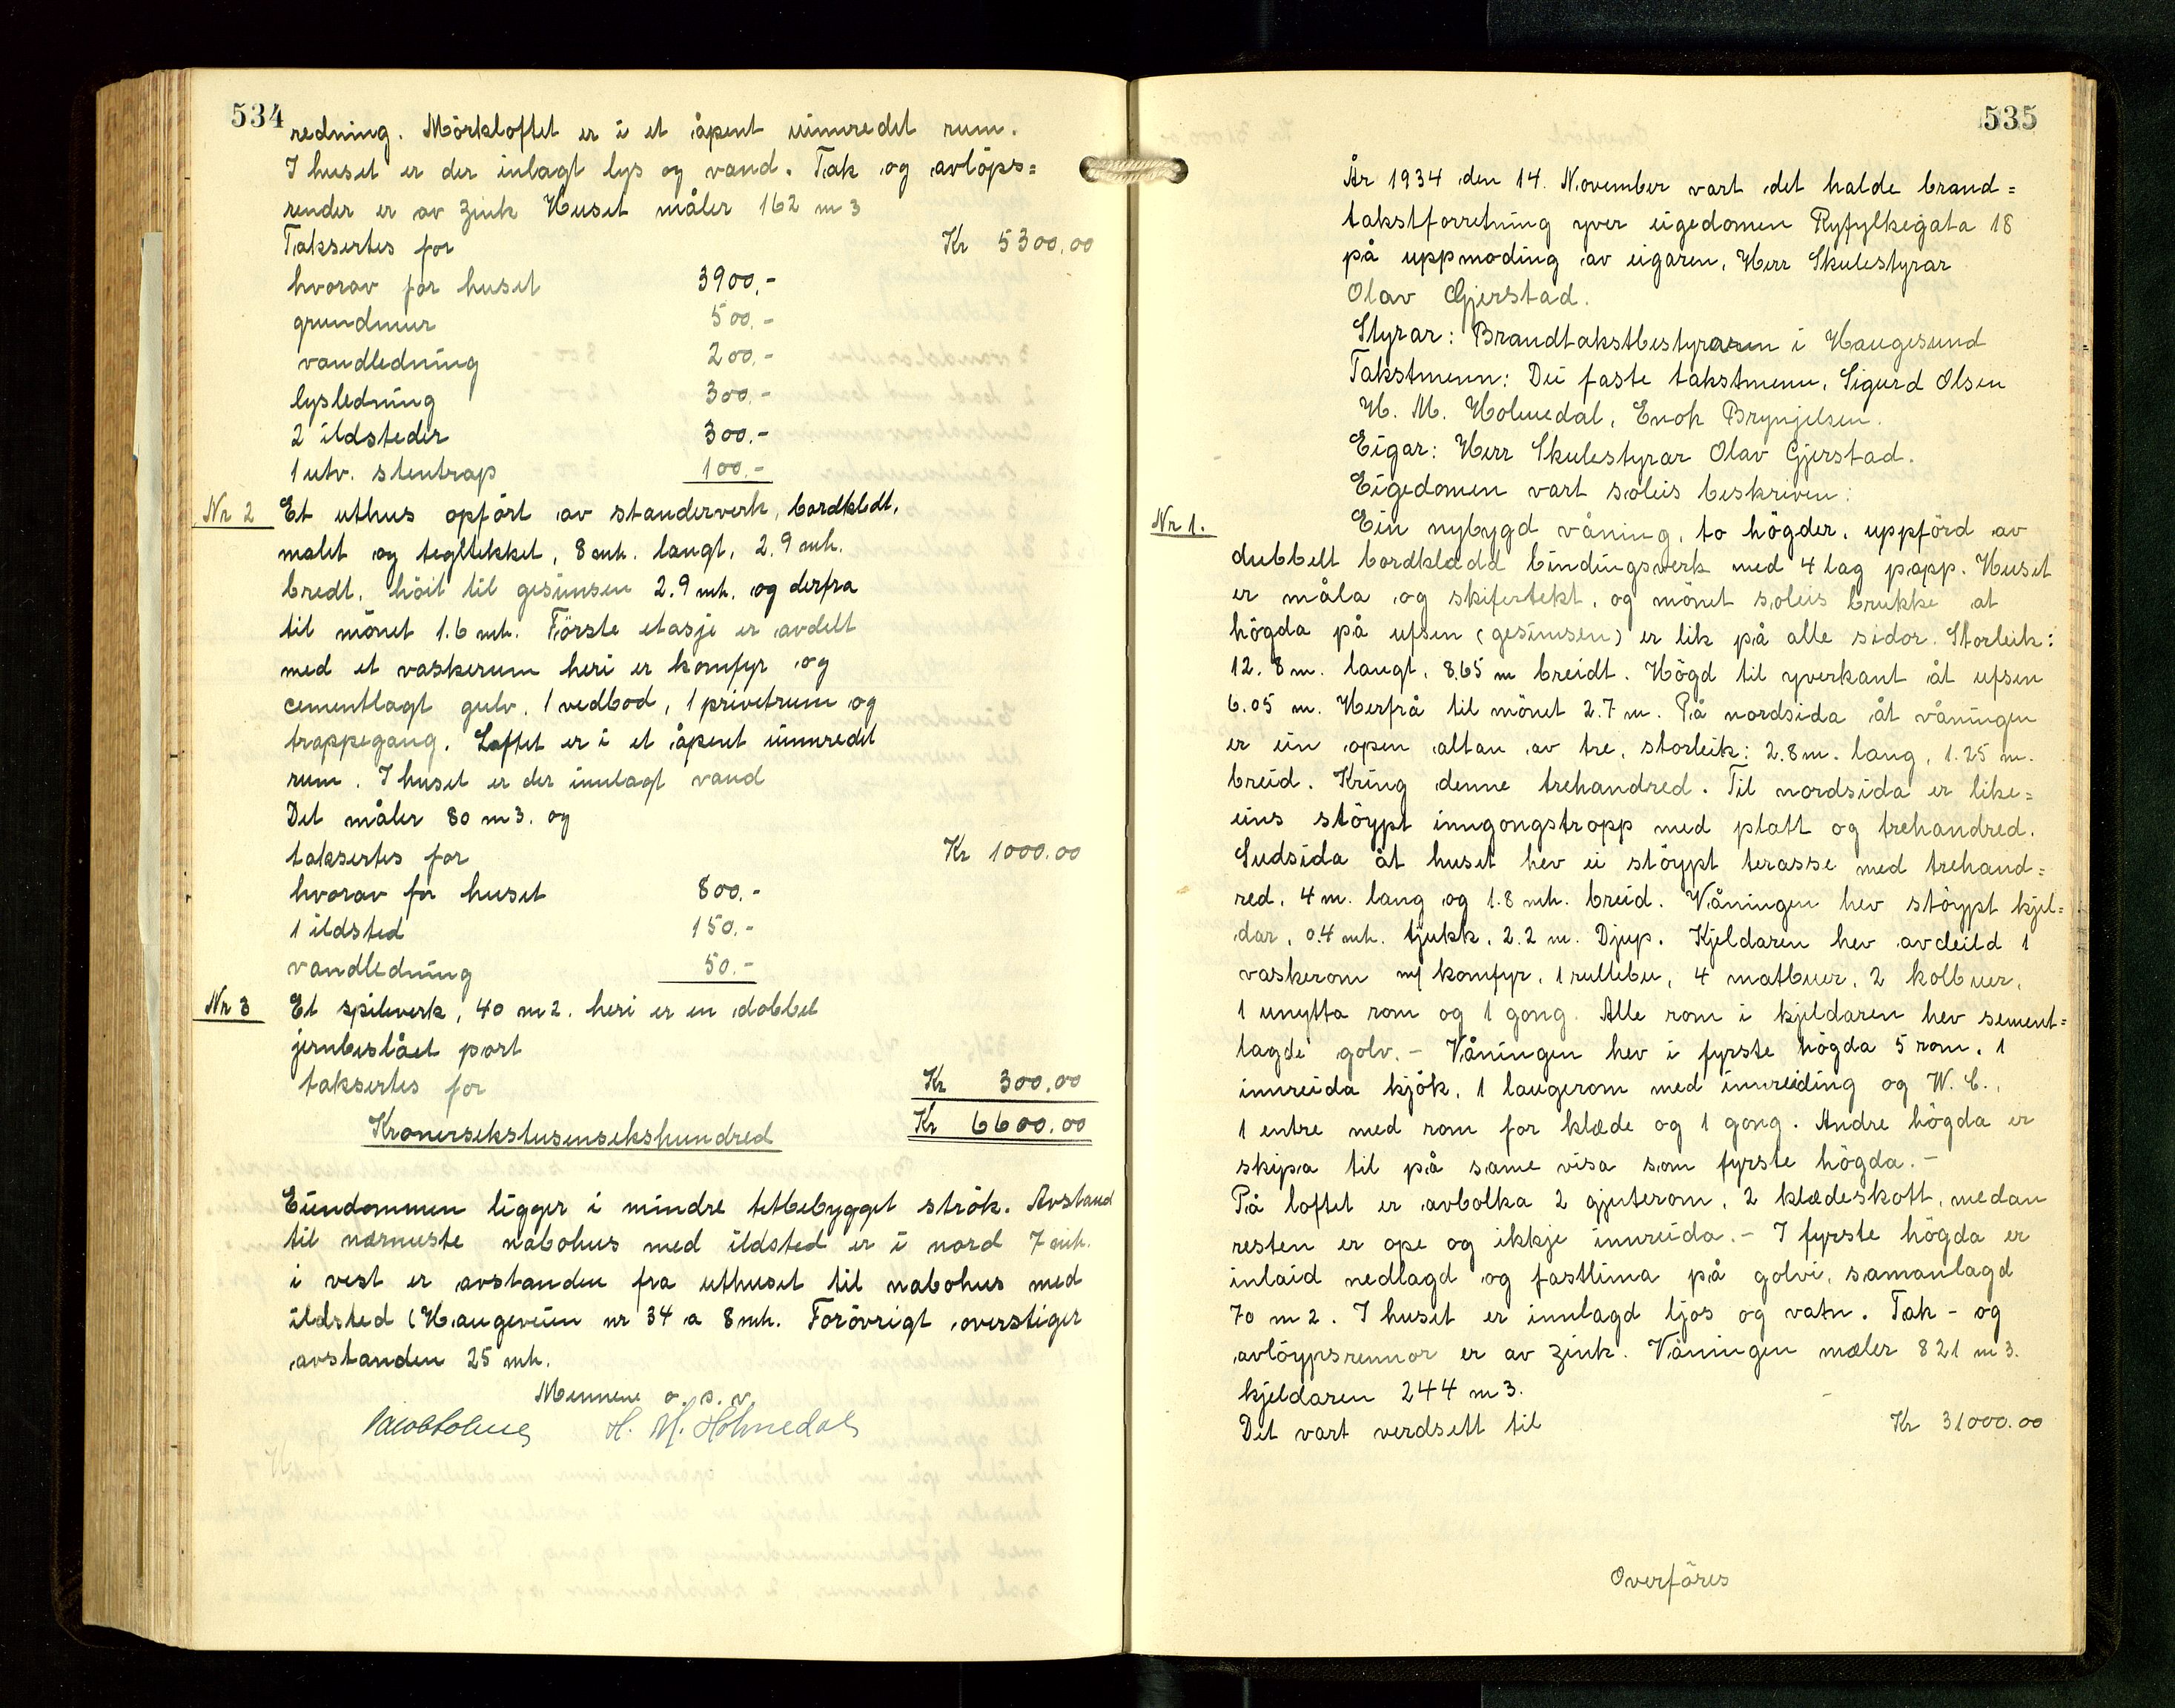 534
redning. Mörkloftet er i et åpent uinnredet rum.
I huset er der inlagt lys og vand. Tak og avlöps=
render er av zink Huset måler 162 m3
Taksertes for Kr 5300,00
hvorav for huset 3900,-
grundmur 500,-
vandledning 200,-
lysledning 300,-
2 ildsteder 300,-
1 utv. stentrap 100,-
Nr 2 Et uthus opfört av standerverk, bordkledt,
malt og tegltekket, 8 mtr. langt, 2.9 mtr.
bredt, höit til gesimsen 2.9 mtr. og derfra
til mönet 1.6 mtr. Förste etasje er avdelt
med et vaskerum heri er komfyr og
cementlagt gulv, 1 vedbod, 1 privetrum og
trappegang. Loftet er i et åpent uinnredet
rum. I huset er der innlagt vand
Det måler 80 m3. og
taksertes for Kr 1000.00
hvorav for huset 800,-
1 ildsted 150.-
vandledning 50.-
Nr 3 Et spilverk, 40 m2. heri er en dobbel
jernbeslået port
taksertes for Kr 300.00
Kronersekstusensekshundred Kr 6600.00
Eiendommen ligger i mindre tetbebygget strök. Avstand
til nærmeste nabohus med ildsted er i nord 7 mtr.
i vest er avstanden fra uthuset til nabohus med
ildsted (Haugeveien nr 34 a 8 mtr. Forövrigt overstiger
avstanden 25 mtr.
Mennene o. s. v.
H. M. Holmedal
535
År 1934 den 14. November vart det halde brand=
takstforretning yver eigedomen Ryfylkegata 18
på uppmoding av eigaren, Herr Skulestyrar
Olav Gjerstad.
Styrar: Brandtakstbestyraren i Haugesund
Takstmenn: Dei faste takstmenn, Sigurd Olsen
H. M. Holmedal, Enok Brynjelsen.
Eigar: Herr Skulestyrar Olav Gjerstad.
Eigedomen vart soleis beskriven:
Nr 1. Ein nybygd våning, to högder, uppförd av
dubbelt bordklædd bindingsverk med 4 lag papp. Huset
er måla og skifertekt, og mönet soleis brukke at
högda på ufsen (gesimsen) er lik på alle sidor. Storleik:
12.8 m. langt, 8.65 m breidt. Högd til yverkant åt ufsen
6.05 m. Herfrå til mönet 2.7 m. På nordsida åt våningen
er ein open altan av tre, storleik: 2.8 m. lang, 1.25 m.
breid. Kring denne trehandred. Til nordsida er like=
eins stöypt inngongstropp med platt og trehandred.
Sudsida åt huset hev ei stöypt terasse med trehand=
red, 4 m. lang og 1.8 mtr. breid. Våningen hev stöypt kjel=
dar, 0.4 mtr. tjukk, 2.2 m. Djup. Kjeldaren hev avdeild 1
vaskerom m/ komfyr, 1 rullebu, 4 matbuer, 2 kolbuer,
1 unytta rom og 1 gong. Alle rom i kjeldaren hev sement=
lagde golv. - Våningen hev i fyrste högda 5 rom, 1
innreida kjök, 1 laugerom med innreiding og W. C.,
1 entre med rom for klæde og 1 gong. Andre högda er
skipa til på same visa som fyrste högda. -
På loftet er avbolka 2 gjuterom, 2 klædeskott, medan
resten er ope og ikkje innreida. - I fyrste högda er
inlaid nedlagd og fastlima på golvi, samanlagd
70 m2. I huset er innlagd ljos og vatn. Tak- og
avlöypsrennor er av zink. Våningen mæler 821 m3.
kjeldaren 244 m3.
Det vart verdsett til Kr 31000.00
Overföres